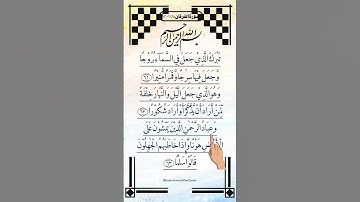 سورة الفرقان
بسم الله الرحمن الرحيم
تَبٰرَكَ الَّذِي جَعَلَ فِي السَّمَاءِ بُرُوجًا
وَّجَعَلَ فِيهَا سِرٰجًا وَّقَمَرًا مُّنِيرًا ٦١
وَهُوَ الَّذِي جَعَلَ الَّيْلَ وَالنَّهَارَ خِلْفَةً
لِّمَنْ أَرَادَ أَن يَذَّكَّرَ أَوْ أَرَادَ شُكُورًا ٦٢
وَعِبَادُ الرَّحْمٰنِ الَّذِينَ يَمْشُونَ عَلَى
الْأَرْضِ هَوْنًا وَّإِذَا خَاطَبَهُمُ الْجٰهِلُونَ
قَالُوا سَلٰمًا ٦٣